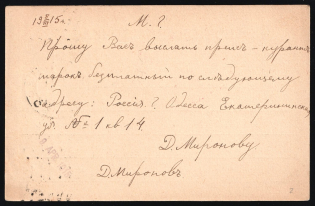 19 15 г.
М. Г.
Прошу Вас выслать прейс-курант
марок безплатный по следующему
адресу: Россия г. Одесса Екатерининская
ул. № 1 кв 14
Д. Миропову
Д. Мироповъ